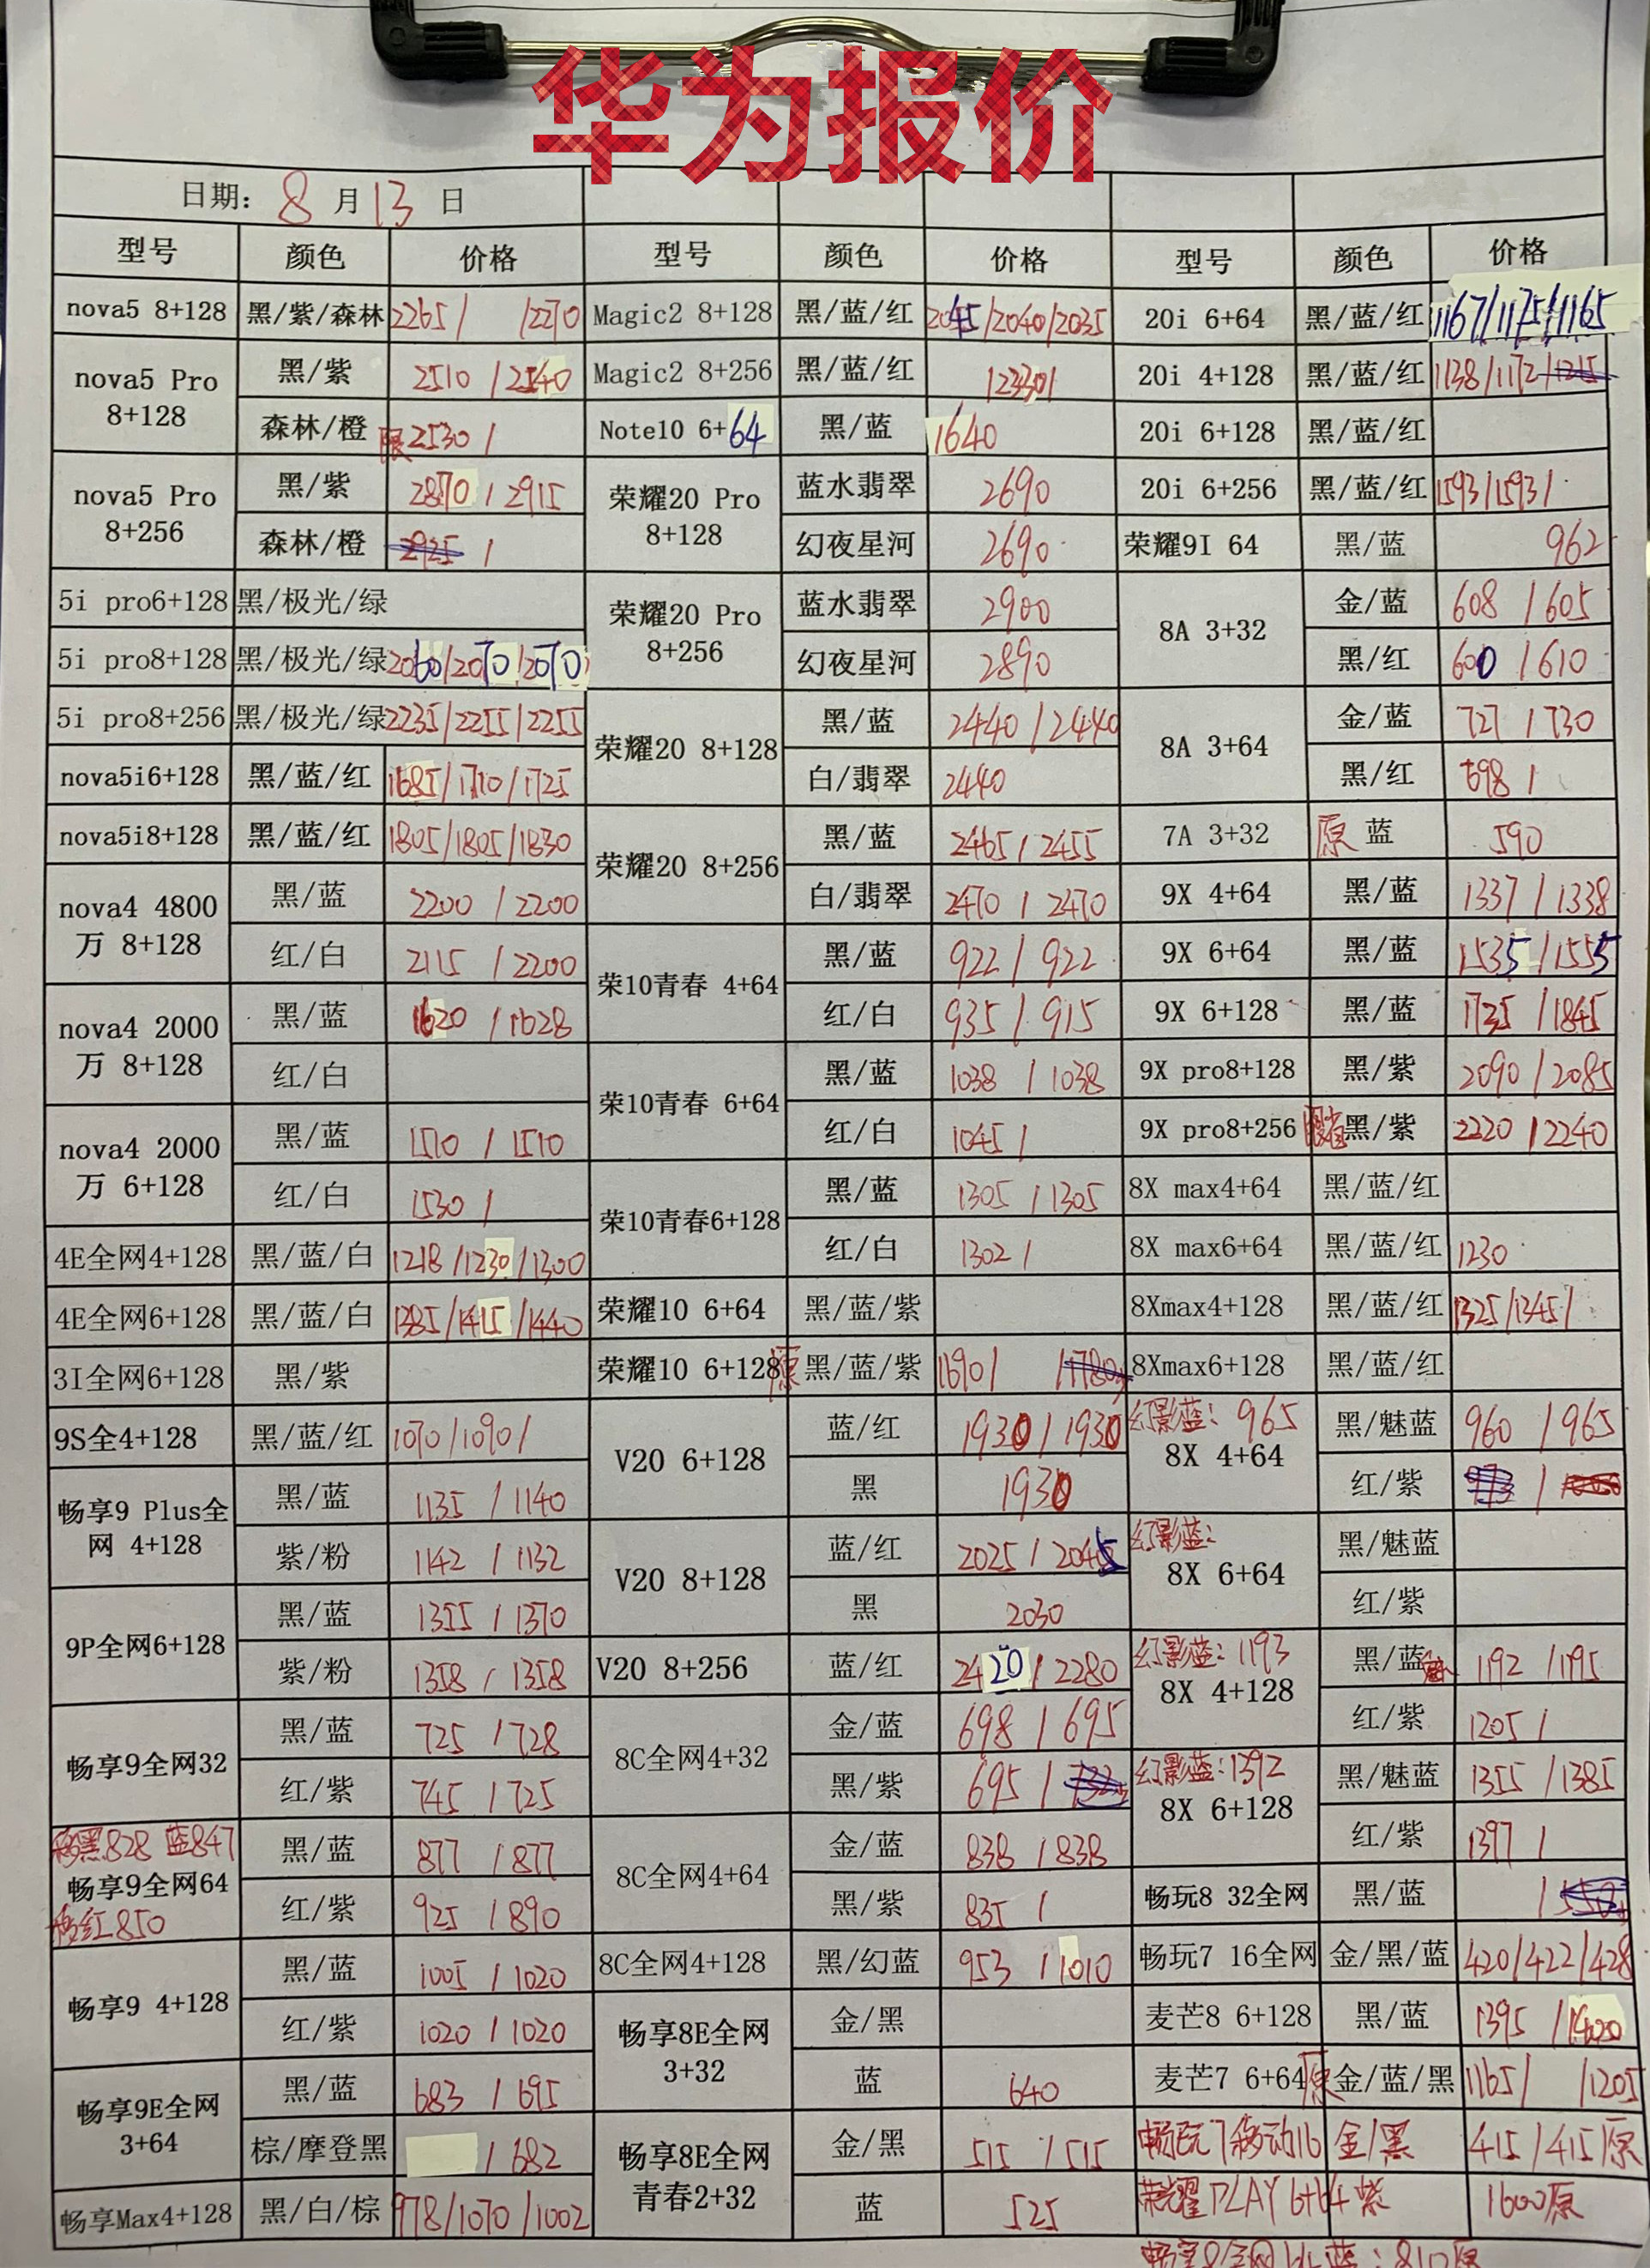 华为报价
日期： 8 月 13 日
型号 颜色 价格 型号 颜色 价格 型号 颜色 价格
nova5 8+128 黑/紫/森林 2265/ /2270 Magic2 8+128 黑/蓝/红 2045/2040/2035 20i 6+64 黑/蓝/红 1167/1175/1165
nova5 Pro 8+128 黑/紫 2510 /2540 Magic2 8+256 黑/蓝/红 /2330/ 20i 4+128 黑/蓝/红 1138/1172/
森林/橙 限2530 / Note10 6+64 黑/蓝 1640 20i 6+128 黑/蓝/红
nova5 Pro 8+256 黑/紫 2870 / 2915 荣耀20 Pro 8+128 蓝水翡翠 2690 20i 6+256 黑/蓝/红 1593/1593/
森林/橙 2925 / 幻夜星河 2690 荣耀9I 64 黑/蓝 962
5i pro6+128 黑/极光/绿 荣耀20 Pro 8+256 蓝水翡翠 2900 8A 3+32 金/蓝 608 /605
5i pro8+128 黑/极光/绿 2060/2070/2070 幻夜星河 2890 黑/红 600 /610
5i pro8+256 黑/极光/绿 2235/2255/2255 荣耀20 8+128 黑/蓝 2440 /2440 8A 3+64 金/蓝 727 /730
nova5i6+128 黑/蓝/红 1685/1710/1725 白/翡翠 2440 黑/红 698 /
nova5i8+128 黑/蓝/红 1805/1805/1830 荣耀20 8+256 黑/蓝 2465 / 2455 7A 3+32 原 蓝 590
nova4 4800万 8+128 黑/蓝 2200 /2200 白/翡翠 2470 / 2470 9X 4+64 黑/蓝 1337 /1338
红/白 2115 /2200 荣10青春 4+64 黑/蓝 922 / 922 9X 6+64 黑/蓝 1535 /1555
nova4 2000万 8+128 黑/蓝 1620 /1628 红/白 935 / 915 9X 6+128 黑/蓝 1735 /1845
红/白 荣10青春 6+64 黑/蓝 1038 / 1038 9X pro8+128 黑/紫 2090 /2085
nova4 2000万 6+128 黑/蓝 1510 / 1510 红/白 1045 / 9X pro8+256 黑/紫 2220 /2240
红/白 1530 / 荣10青春6+128 黑/蓝 1305 / 1305 8X max4+64 黑/蓝/红
4E全网4+128 黑/蓝/白 1218/1230/1300 红/白 1302 / 8X max6+64 黑/蓝/红 1230
4E全网6+128 黑/蓝/白 1385/1415/1440 荣耀10 6+64 黑/蓝/紫 8Xmax4+128 黑/蓝/红 1325/1345/
3I全网6+128 黑/紫 荣耀10 6+128 原 黑/蓝/紫 1690/ /1780 8Xmax6+128 黑/蓝/红
9S全4+128 黑/蓝/红 1070/1090/ V20 6+128 蓝/红 1930 / 1930 幻影蓝：965 8X 4+64 黑/魅蓝 960 /965
畅享9 Plus全网 4+128 黑/蓝 1135 / 1140 黑 1930 红/紫 /
紫/粉 1142 / 1132 V20 8+128 蓝/红 2025 / 2045 幻影蓝： 8X 6+64 黑/魅蓝
9P全网6+128 黑/蓝 1355 / 1370 黑 2030 红/紫
紫/粉 1358 / 1358 V20 8+256 蓝/红 2420 / 2280 幻影蓝：1193 8X 4+128 黑/蓝 1192 /1195
畅享9全网32 黑/蓝 725 /728 8C全网4+32 金/蓝 698 / 695 红/紫 1205 /
红/紫 745 / 725 黑/紫 695 / 幻影蓝：1392 8X 6+128 黑/魅蓝 1355 /1385
移黑828 蓝847 畅享9全网64 移红850 黑/蓝 877 / 877 8C全网4+64 金/蓝 838 / 838 红/紫 1397 /
红/紫 925 / 890 黑/紫 835 / 畅玩8 32全网 黑/蓝 /
畅享9 4+128 黑/蓝 1005 / 1020 8C全网4+128 黑/幻蓝 953 / 1010 畅玩7 16全网 金/黑/蓝 420/422/428
红/紫 1020 / 1020 畅享8E全网 3+32 金/黑 麦芒8 6+128 黑/蓝 1395 /1400
畅享9E全网 3+64 黑/蓝 683 / 695 蓝 640 麦芒7 6+64 原 金/蓝/黑 1165/ /1205
棕/摩登黑 / 682 畅享8E全网 青春2+32 金/黑 515 / 515 畅玩7移动16 金/黑 415 /415/原
畅享Max4+128 黑/白/棕 978/1070/1002 蓝 525 荣耀PLAY 6+64 紫 1600原